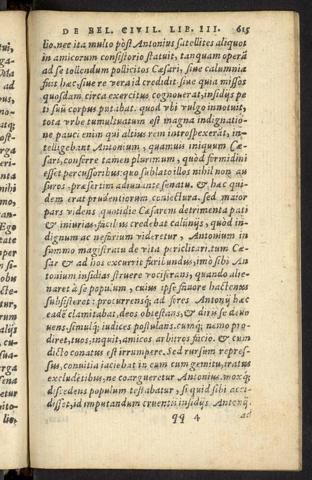 DE BEL. CIVIL. LIB. III. 615
lio. nec ita multo pòst Antonius satellites aliquot
in amicorum consistorio statuit, tanquam operā
ad se tollendum pollicitos Cæsari, siue calumnia
fuit hæc, siue re vera id credidit quia missos
quosdam circa exercitus cognouerat, insidijs pe
ti suū corpus putabat. quod vbi vulgo innotuit,
tota vrbe tumultuatum est magna indignatio-
ne pauci enim qui altius rem introspexerāt, in-
telligebant Antonium, quamuis iniquum Cæ-
sari, conferre tamen plurimum, quòd formidini
esset percussoribus: quo sublato illos nihil non au
suros, præsertim adiuuante senatu. & hæc qui-
dem erat prudentiorum coniectura. sed maior
pars videns quotidie Cæsarem detrimenta pati
& iniurias, facilius credebat calūnijs, quòd in-
dignum ac nefarium videretur, Antonium in
summo magistratu de vita periclitari. tum Cæ-
sar & ad hos excurrit furibundus, imò sibi An
tonium insidias struere vociferans, quando alie-
naret à se populum, cuius ipse fauore hactenus
subsisteret: procurrensq; ad fores Antonij hæc
eadē clamitabat, deos obtestans, & diris se deuo
uens, simulq; iudices postulans. cumq; nemo pro-
diret, tuos, inquit, amicos arbitros facio. & cum
dicto conatus est irrumpere. Sed rursùm repres-
sus, conuitia iaciebat in eum cum gemitu, iratus
excludētibus, ne coargueretur Antonius. moxq;
discedens populum testabatur, si quid sibi acci-
disset, id imputandum cruentis insidijs Antonij.
qq 4 ad